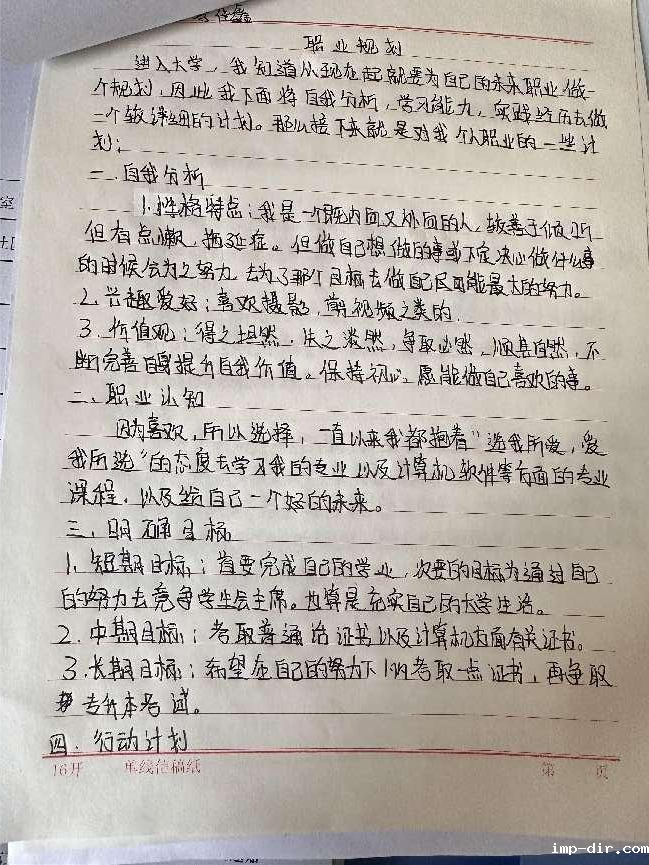 职业规划
进入大学，我知道从现在起就要为自己的未来职业做一
个规划，因此我下面将自我分析，学习能力，实践经历去做
一个较详细的计划。那么接下来就是对我个人职业的一些计
划：
一、自我分析
1.性格特点：我是一个既内向又外向的人，较善于倾听
但有点懒，拖延症。但做自己想做的事或下定决心做什么事
的时候会为之努力，去为了那个目标去做自己尽可能最大的努力。
2、兴趣爱好：喜欢摄影，剪视频之类的.
3、价值观：得之坦然，失之淡然，争取必然，顺其自然，不
断完善自身提升自我价值。保持初心，愿能做自己喜欢的事。
二、职业认知
因为喜欢，所以选择，一直以来我都抱着"选我所爱，爱
我所选"的态度去学习我的专业以及计算机软件等方面的专业
课程，以及给自己一个好的未来。
三、明确目标
1、短期目标：首要完成自己的学业，次要的目标为通过自己
的努力去竞争学生会主席。也算是充实自己的大学生活。
2、中期目标：考取普通话证书以及计算机方面有关证书。
3、长期目标：希望在自己的努力下考取一点证书，再争取
专升本考试。
四、行动计划
16开 单线信稿纸 第 页
imp-dir.com